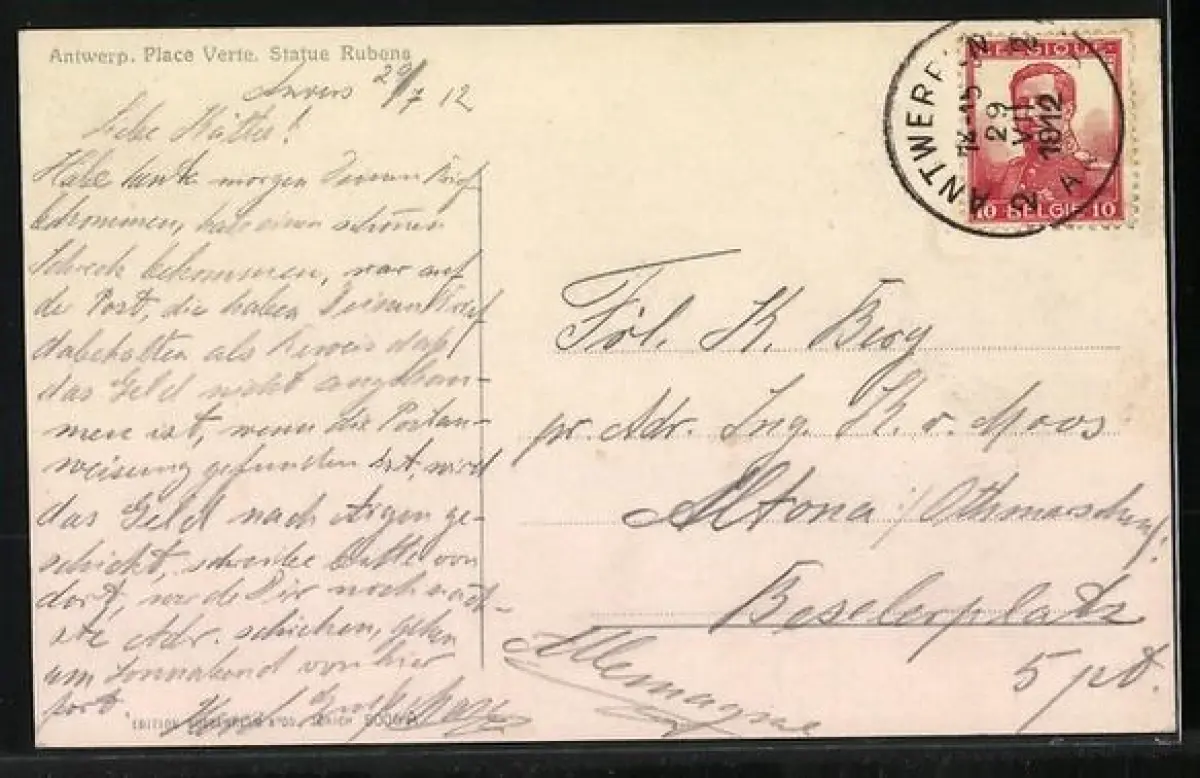 Antwerp. Place Verte. Statue Rubens
Anvers 29/7 12
Liebe
Habe heute morgen Deinen Brief
bekommen, habe einen schönen
Schreck bekommen, war auf
der Post, die haben Deinen Brief
dabehalten als Beweis daß
das Geld nicht angekom-
men ist, wenn die Postan-
weisung gefunden ist, wird
das Geld nach geschickt
schickt, schreibe bitte von
dort, werde Dir noch näch-
ste Adr. schicken, gehen
am Sonnabend von hier
fort
EDITION ZÜRICH
ANTWERPEN
12-15
29
VII
1912
2 A
BELGIQUE
10 BELGIE 10
Frl. K. Berg
pr. Adr. Ing. K. v. Moos
Altona /Othmarschen
Beselerplatz
5 pt.
Allemagne